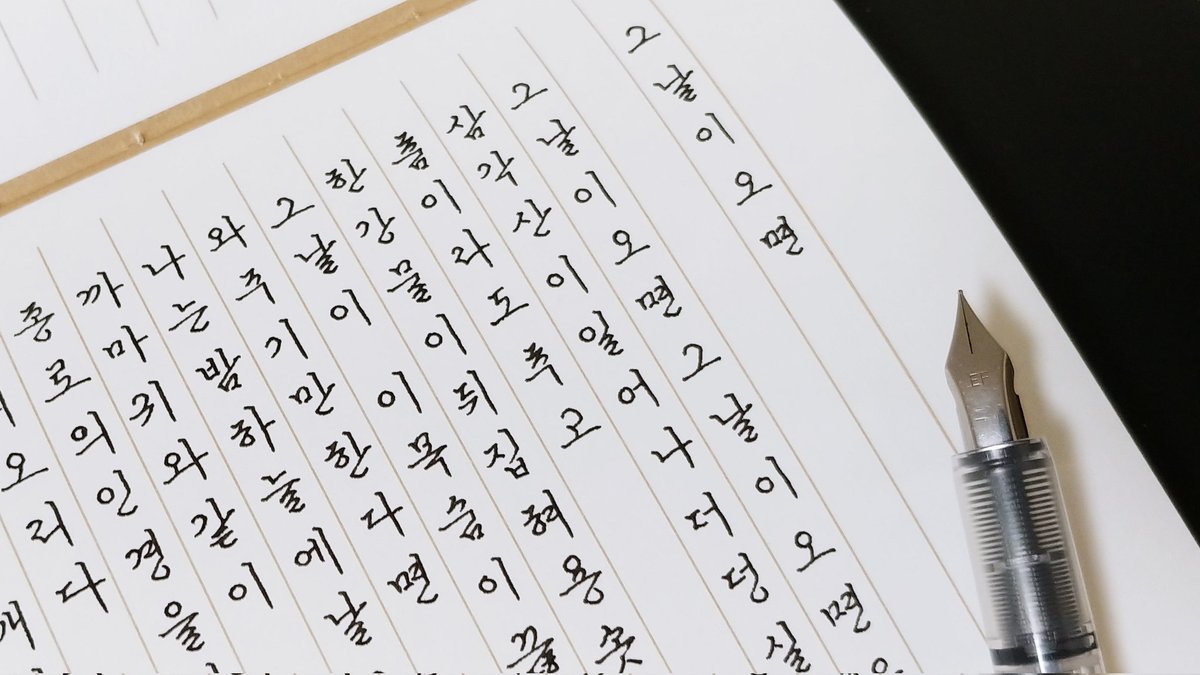 그날이오면
그날이오면 그날이오면
삼각산이 일어나 더덩실
춤이라도 추고
한강물이 뒤집혀 용솟
그날이 이 목숨이 끊
와주기만 한다면
나는 밤하늘에 날
까마귀와 같이
종로의 인경을
오리다